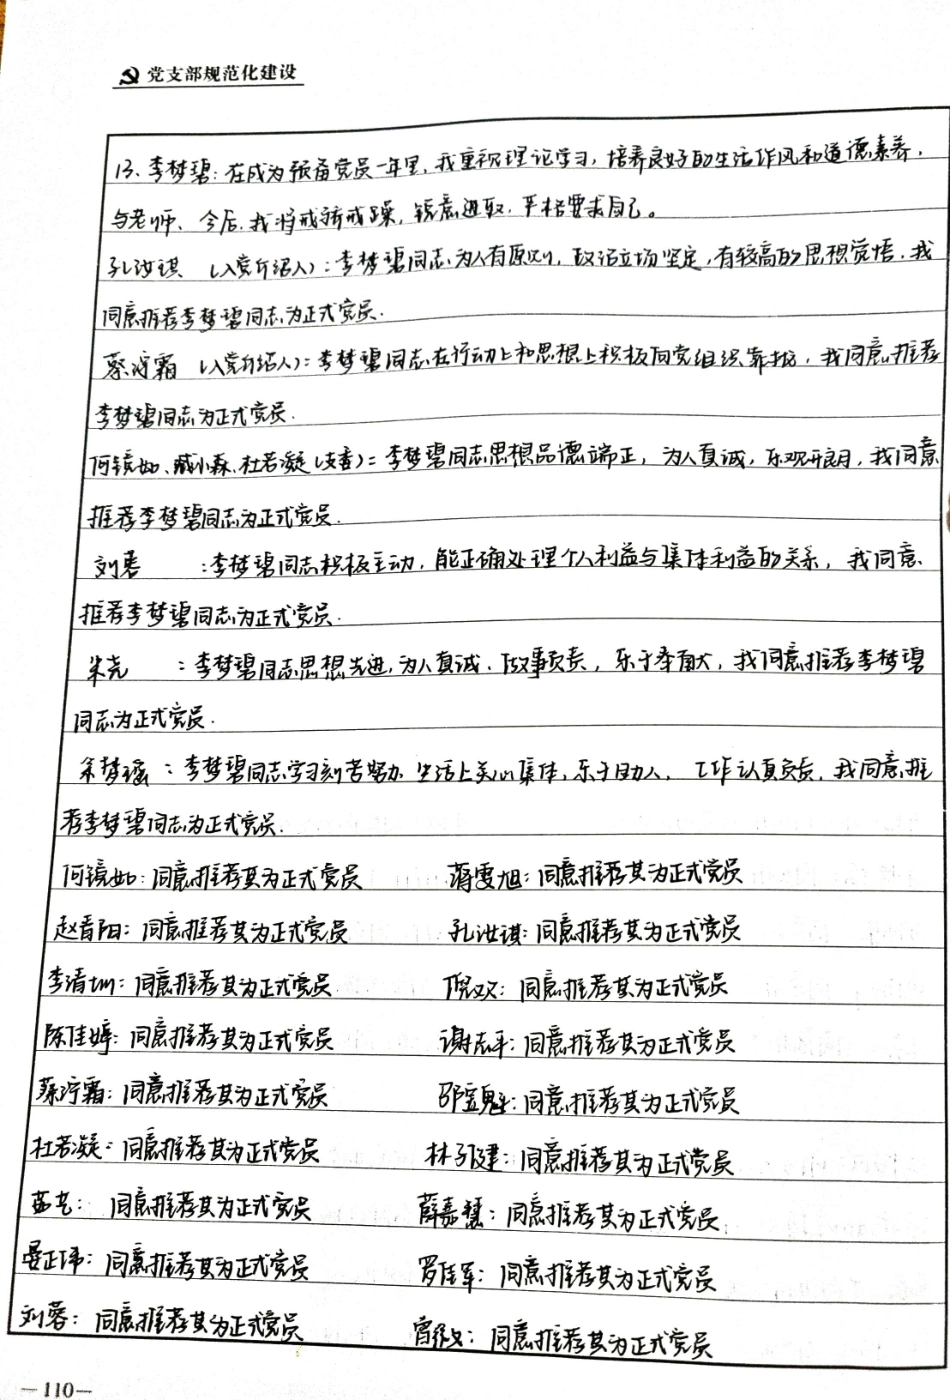 党支部规范化建设
13、李梦碧：在成为预备党员一年里，我重视理论学习，培养良好的生活作风和道德素养，
与老师、今后，我将戒骄戒躁，锐意进取，严格要求自己。
孔汝琪 （入党介绍人）：李梦碧同志为人有原则，政治立场坚定，有较高的思想觉悟，我
同意推荐李梦碧同志为正式党员．
蔡泞霜 （入党介绍人）：李梦碧同志在行动上和思想上积极向党组织靠拢，我同意推荐
李梦碧同志为正式党员．
何镜如、臧小森、杜若凝（支委）：李梦碧同志思想品德端正，为人真诚，乐观开朗，我同意
推荐李梦碧同志为正式党员．
刘蓉 ：李梦碧同志积极主动，能正确处理个人利益与集体利益的关系，我同意
推荐李梦碧同志为正式党员．
朱尧 ：李梦碧同志思想先进，为人真诚、做事负责，乐于奉献，我同意推荐李梦碧
同志为正式党员．
朱梦瑶：李梦碧同志学习刻苦努力 生活上关心集体，乐于助人， 工作认真负责，我同意推
荐李梦碧同志为正式党员．
何镜如：同意推荐其为正式党员 蒋雯旭：同意推荐其为正式党员
赵晋阳：同意推荐其为正式党员 孔汝琪：同意推荐其为正式党员
李清：同意推荐其为正式党员 倪双：同意推荐其为正式党员
陈佳婷：同意推荐其为正式党员 谢志平：同意推荐其为正式党员
蔡泞霜：同意推荐其为正式党员 邵孟魁：同意推荐其为正式党员
杜若凝：同意推荐其为正式党员 林子建：同意推荐其为正式党员
茹艺：同意推荐其为正式党员 薛嘉慧：同意推荐其为正式党员
晏正玮：同意推荐其为正式党员 罗佳军：同意推荐其为正式党员
刘蓉：同意推荐其为正式党员 ：同意推荐其为正式党员
—110—